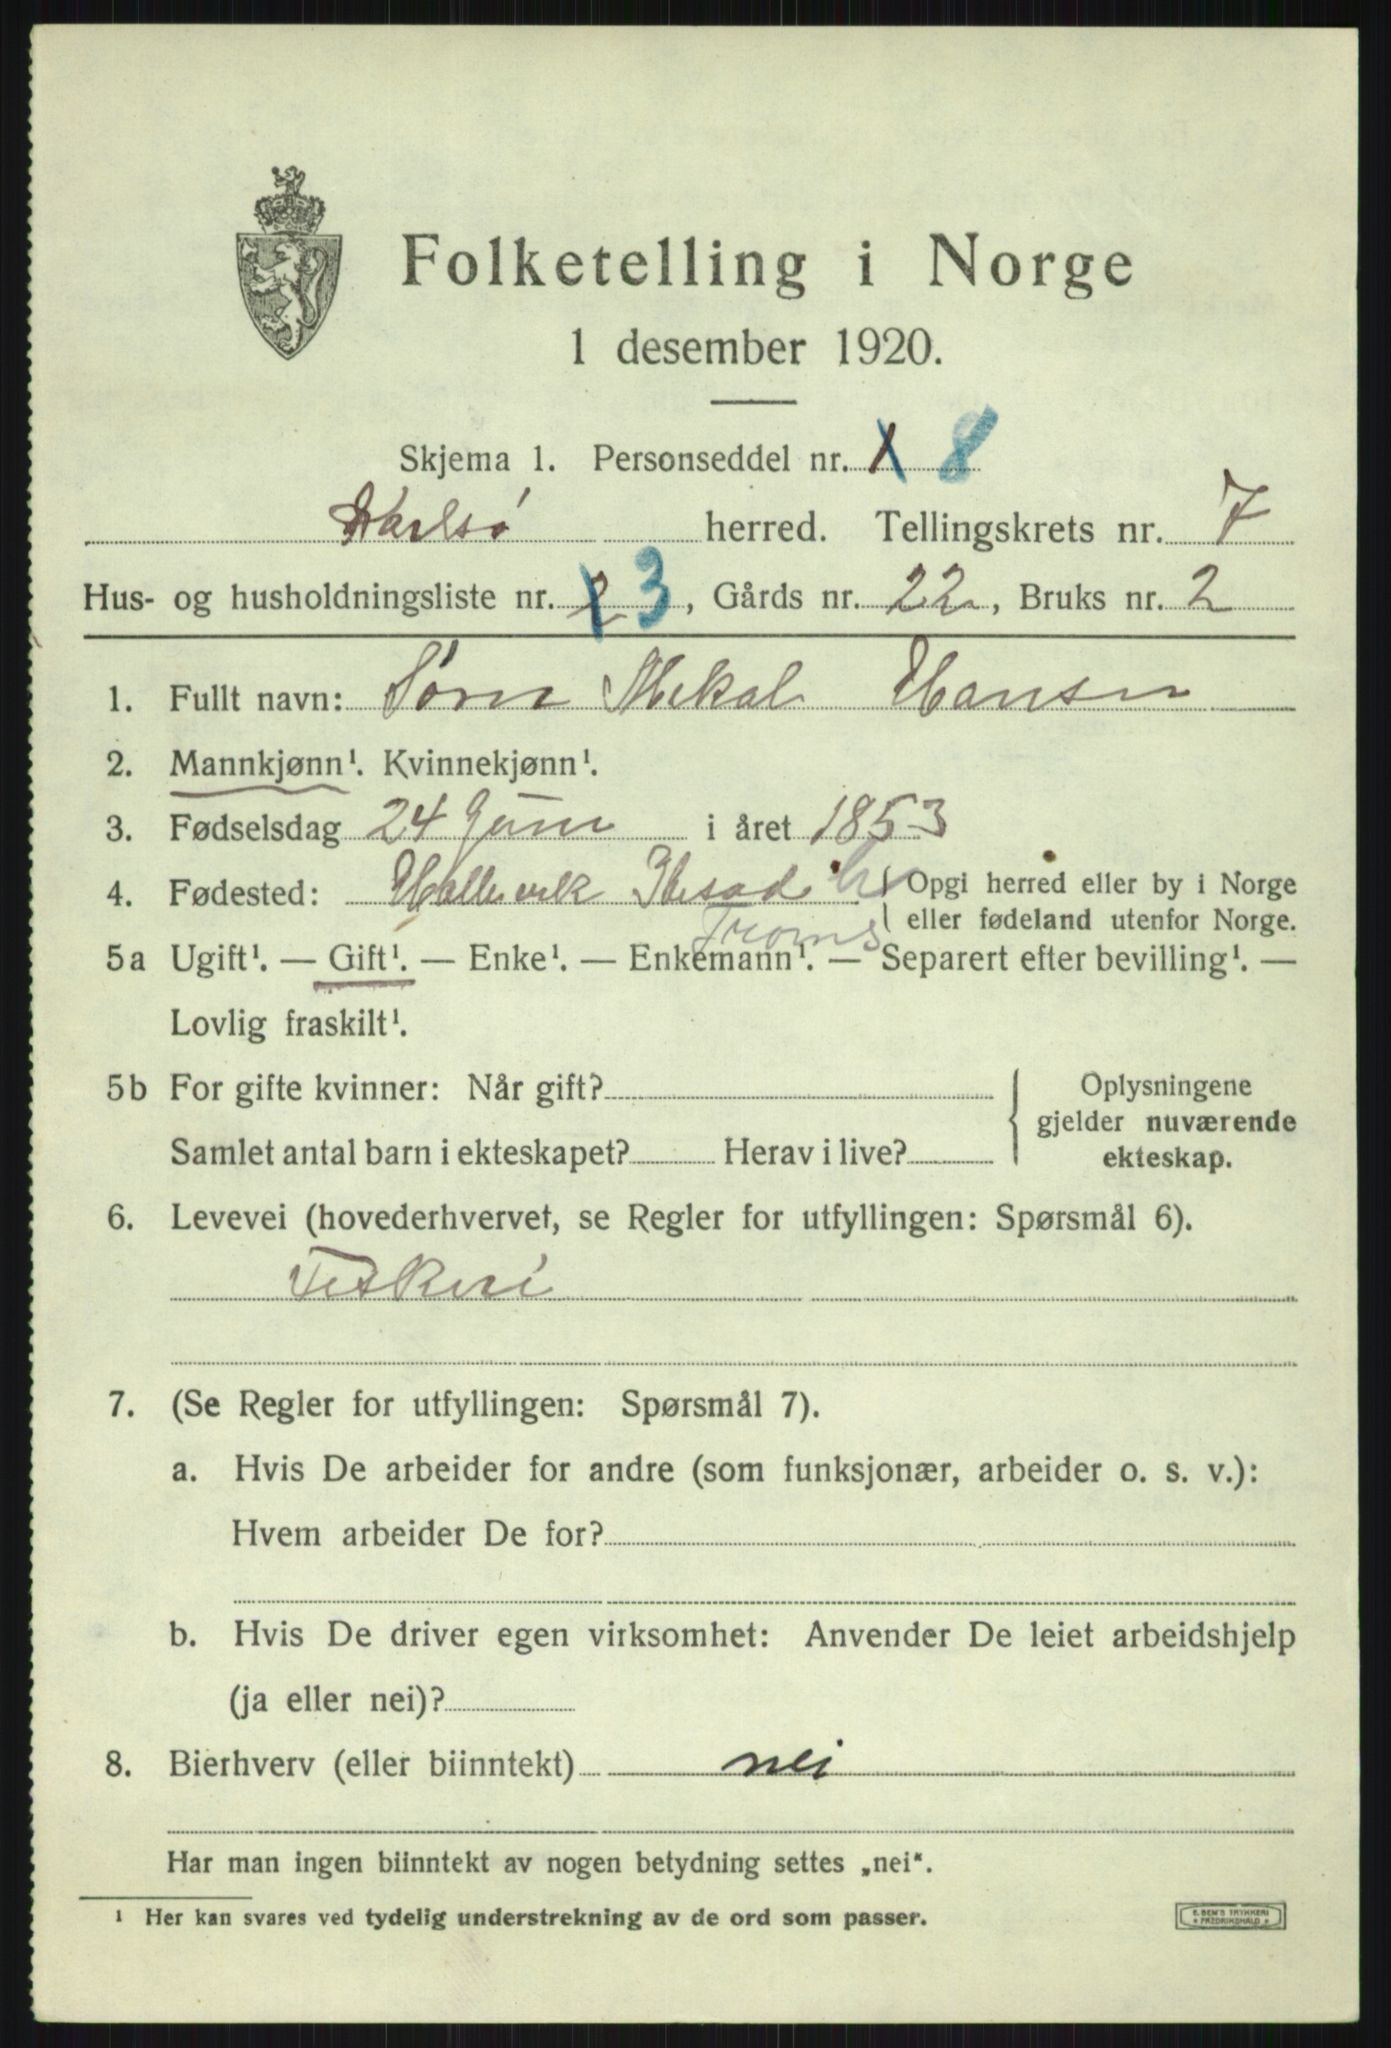 Folketelling i Norge
1 desember 1920.
Skjema 1. Personseddel nr. 1 8
Karlsø herred. Tellingskrets nr. 7
Hus- og husholdningsliste nr. 2 3, Gårds nr. 22, Bruks nr. 2
1. Fullt navn: Sørn Mekal Hansen
2. Mannkjønn¹. Kvinnekjønn¹.
3. Fødselsdag 24 Juni i året 1853
4. Fødested: Hellevik Ibesad { Opgi herred eller by i Norge
eller fødeland utenfor Norge.
Troms
5a Ugift¹. — Gift¹. — Enke¹. — Enkemann¹. — Separert efter bevilling¹. —
Lovlig fraskilt¹.
5b For gifte kvinner: Når gift? { Oplysningene
gjelder nuværende
Samlet antal barn i ekteskapet? Herav i live? ekteskap.
6. Levevei (hovederhvervet, se Regler for utfyllingen: Spørsmål 6).
Fiskeri
7. (Se Regler for utfyllingen: Spørsmål 7).
a. Hvis De arbeider for andre (som funksjonær, arbeider o. s. v.):
Hvem arbeider De for?
b. Hvis De driver egen virksomhet: Anvender De leiet arbeidshjelp
(ja eller nei)?
8. Bierhverv (eller biinntekt) nei
Har man ingen biinntekt av nogen betydning settes „nei“.
¹ Her kan svares ved tydelig understrekning av de ord som passer.